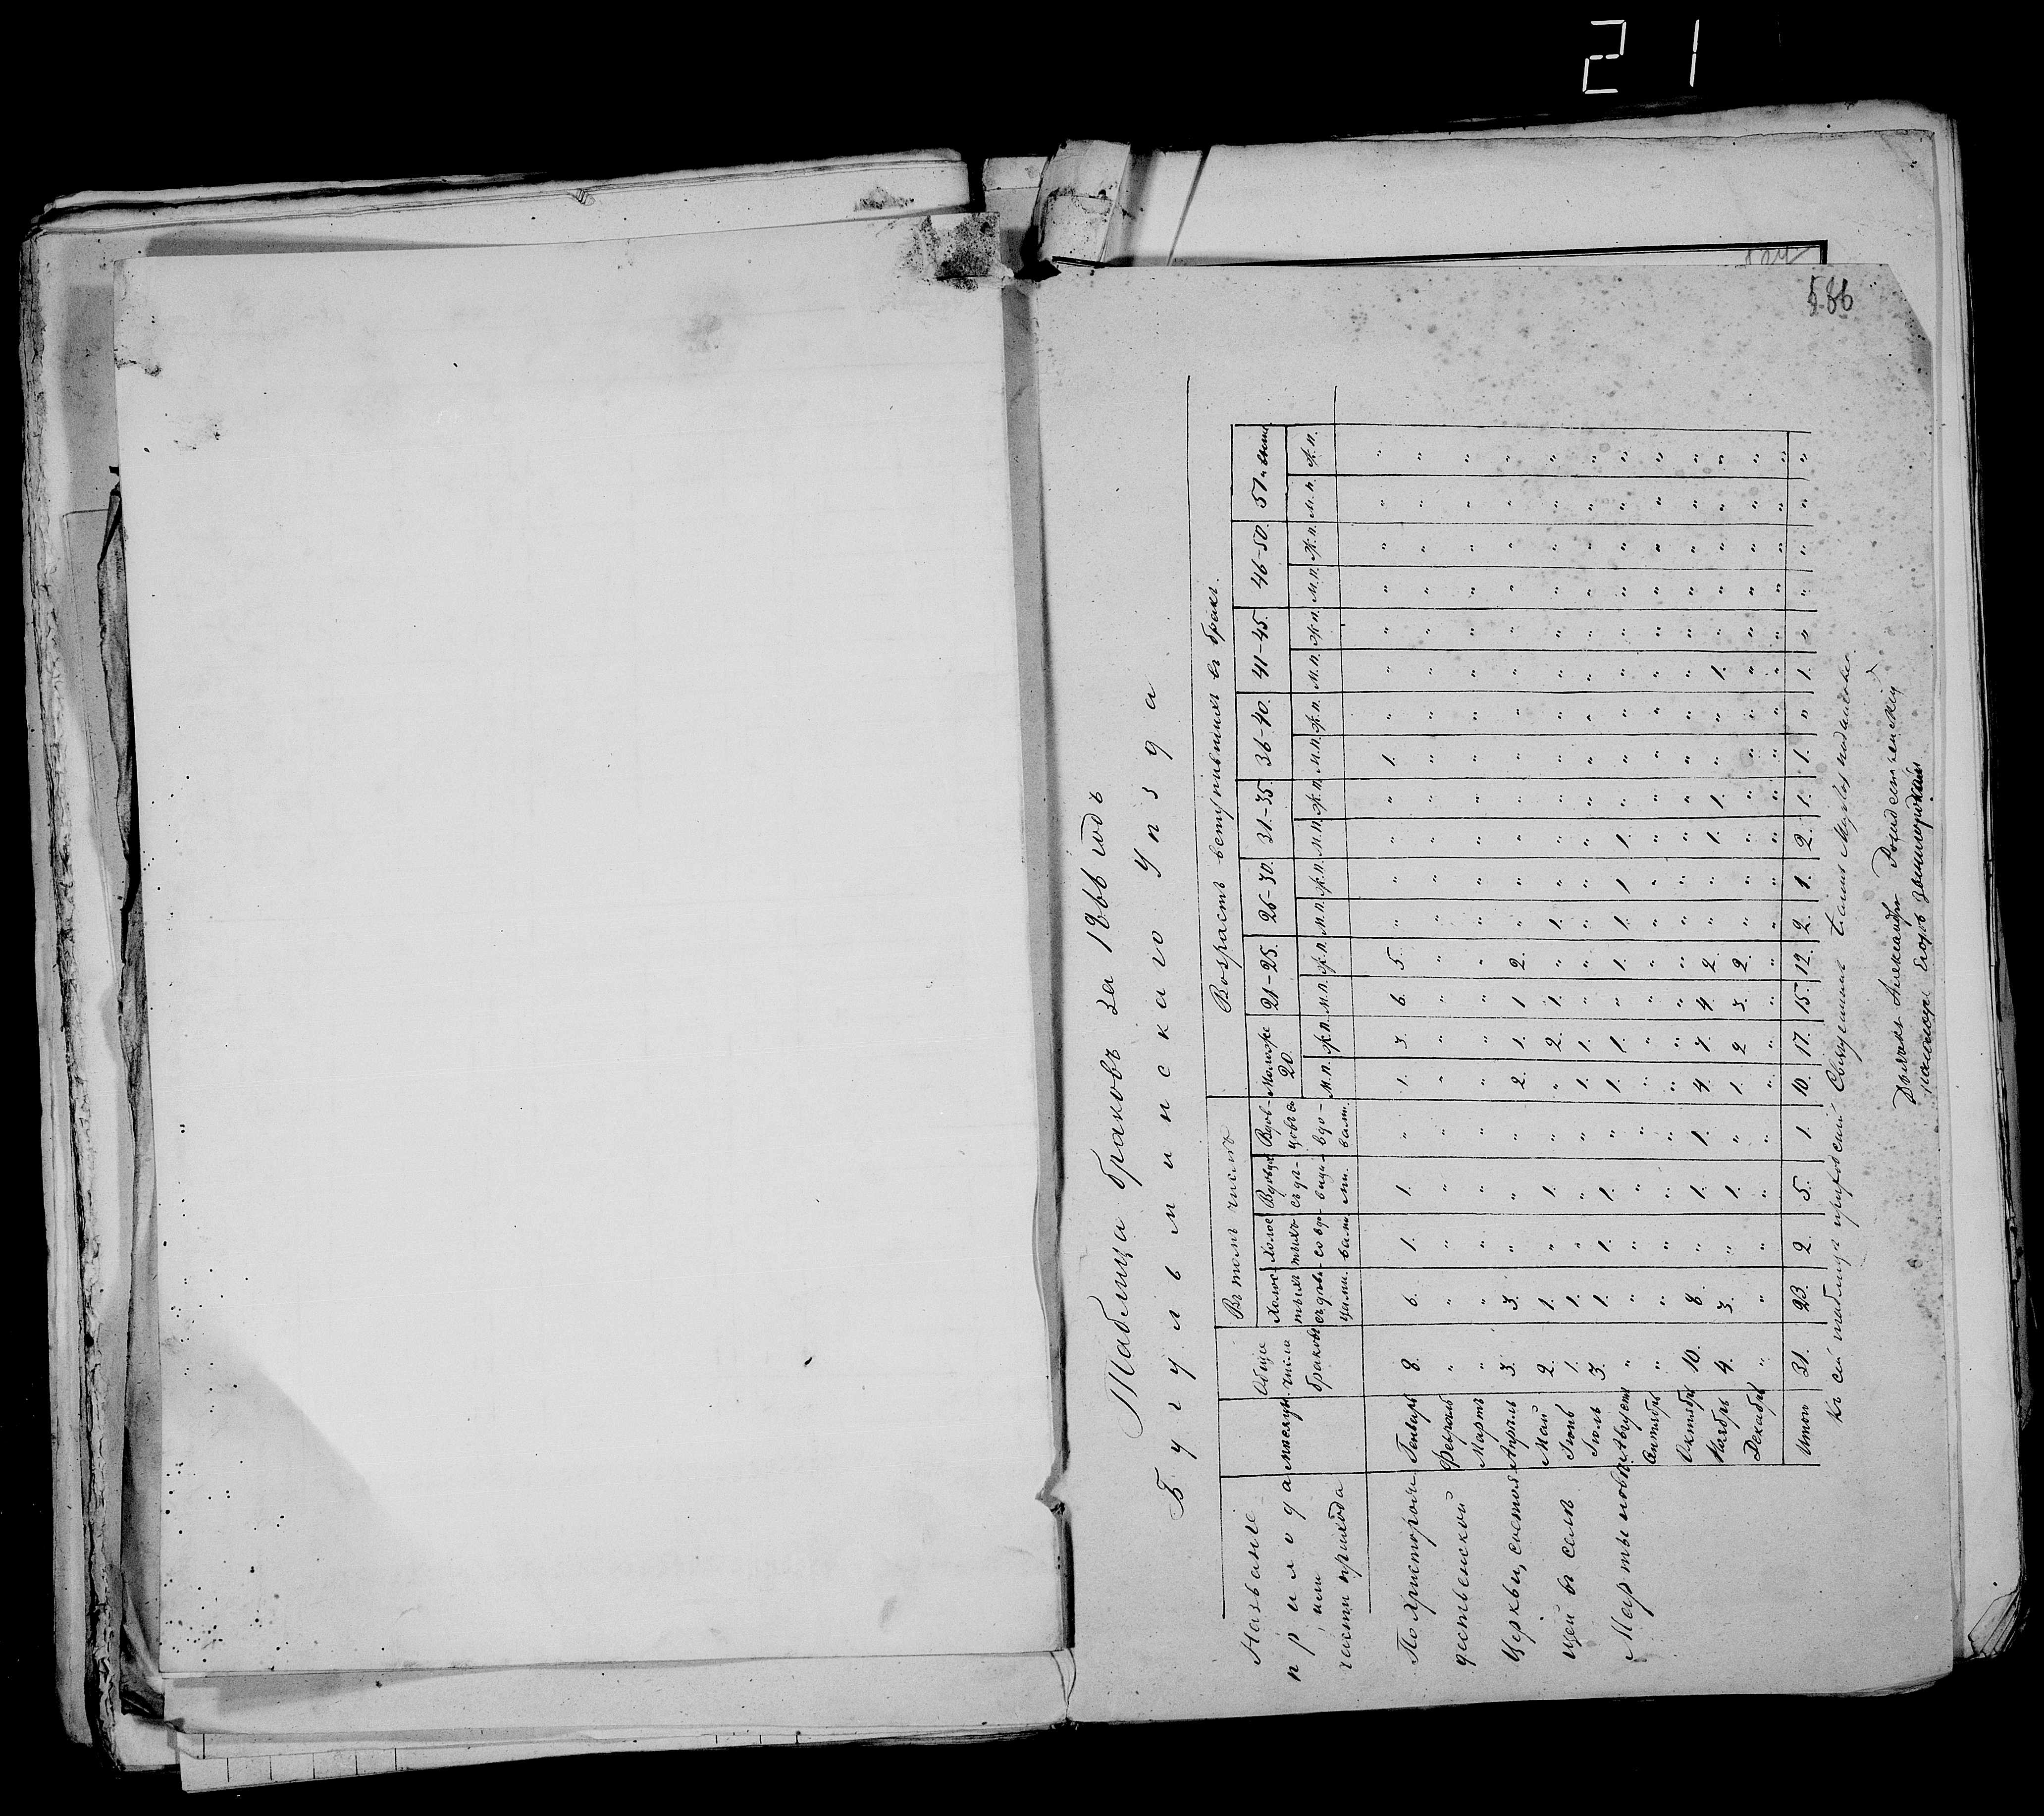 21
586
Таблица браковъ за 1866 годъ
Бугульминскаго Уѣзда
Названіе прихода или части прихода
Мѣсяцы
Общее число браковъ
Въ томъ числѣ
Холостыхъ съ дѣвицами.
Холостыхъ со вдовами
Вдовцовъ съ дѣвицами.
Вдовцовъ со вдовами.
Возрастъ вступившихъ въ бракъ.
Моложе 20. 21-25. 26-30. 31-35. 36-40. 41-45. 46-50. 51 и выше
М.п. Ж.п. М.п. Ж.п. М.п. Ж.п. М.п. Ж.п. М.п. Ж.п. М.п. Ж.п. М.п. Ж.п. М.п. Ж.п.
По Христорождественской Церкви, состоящей въ селѣ
Генварь 8. 6. 1. 1. " 1. 3. 6. 5. " " " " 1. " " " " " " "
Февраль " " " " " " " " " " " " " " " " " " " " "
Мартъ " " " " " " " " " " " " " " " " " " " " "
Апрѣль 3. 3. " " " 2. 1. 1 2. " " " " " " " " " " " "
Май 2. 1. " 1. " " 2. 1. " 1. " " " " " " " " " " "
Іюнь 1. 1. " " " 1. 1. " " " " " " " " " " " " " "
Іюль 3. 1. 1. 1. " 1. 1. " 1. 1. 1 1. " " " " " " " " "
Августъ " " " " " " " " " " " " " " " " " " " " "
Сентябрь " " " " " " " " " " " " " " " " " " " " "
Октябрь 10. 8. " 1. 1. 4. 7. 4. 2. " " 1. 1. " " 1. " " " " "
Ноябрь 4. 3. " 1. " 1. 2 3. 2. " " " " " " " " " " " "
Декабрь " " " " " " " " " " " " " " " " " " " " "
Итого 31. 23. 2. 5. 1. 10. 17. 15. 12. 2. 1. 2. 1. 1. " 1. " " " " "
Къ сей таблицѣ приходскій Священникъ
Дьячекъ Александръ Рождественскій